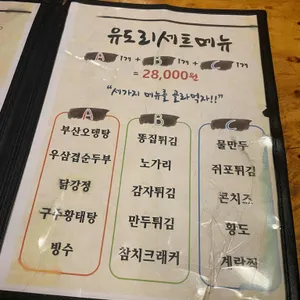 유도리세트메뉴
A 1개 + B 1개 + C 1개
= 28,000원
"세가지 메뉴를 골라먹자!!"
A
부산오뎅탕
우삼겹순두부
닭강정
구수황태탕
빙수
B
똥집튀김
노가리
감자튀김
만두튀김
참치크래커
C
물만두
쥐포튀김
콘치즈
황도
계란찜